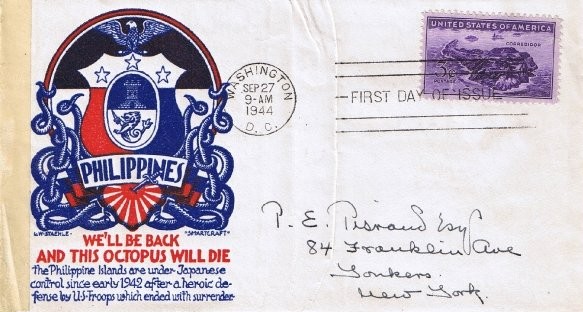 PHILIPPINES
L.W. STAEHLE "SMARTCRAFT"
WE'LL BE BACK
AND THIS OCTOPUS WILL DIE
The Philippine Islands are under Japanese
control since early 1942 after a heroic de-
fense by U.S. Troops which ended with surrender
WASHINGTON
SEP 27
9-AM
1944
D. C.
FIRST DAY OF ISSUE
UNITED STATES OF AMERICA
CORREGIDOR
3¢
P. E. Esq
84 Franklin Ave
Yonkers
New York.